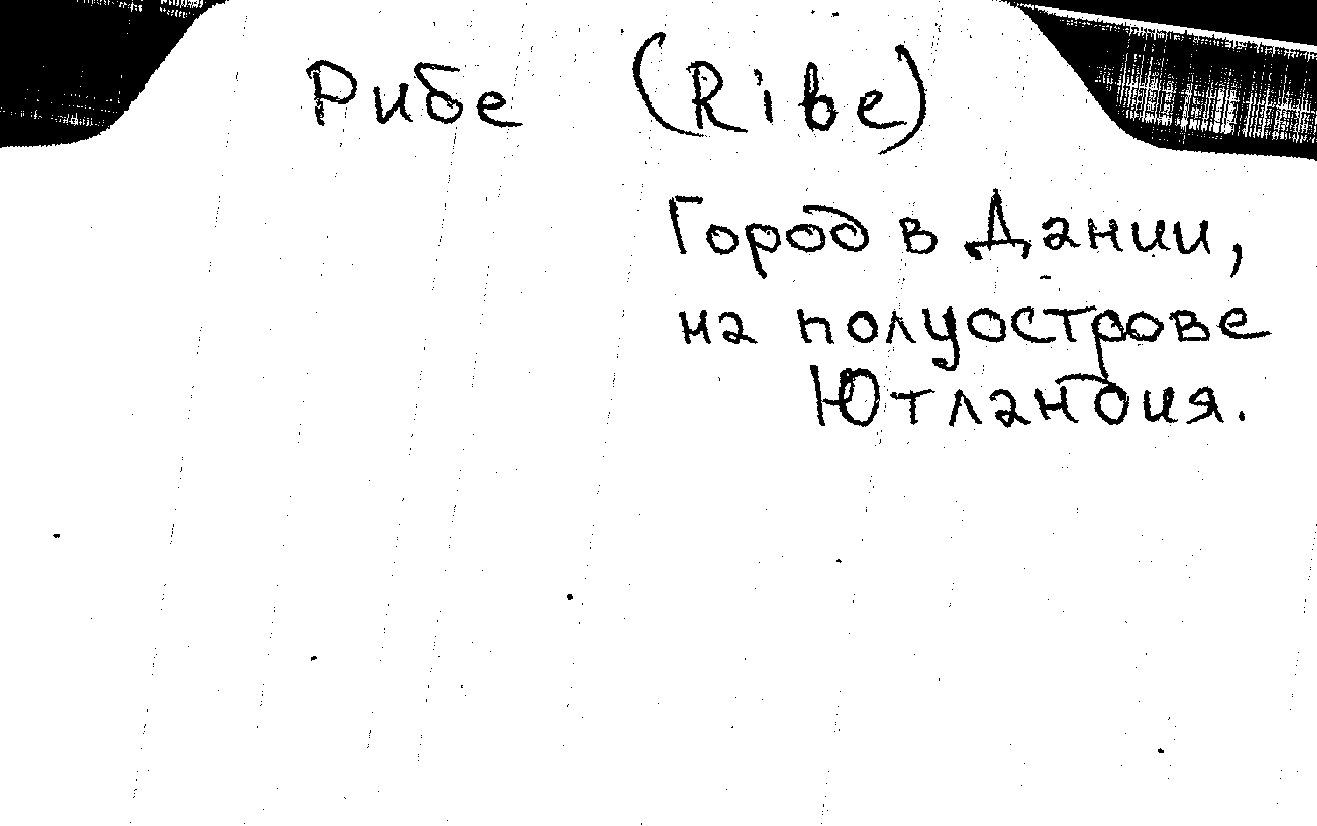 Рибе (Ribe)
Город в Дании,
на полуострове
Ютландия.